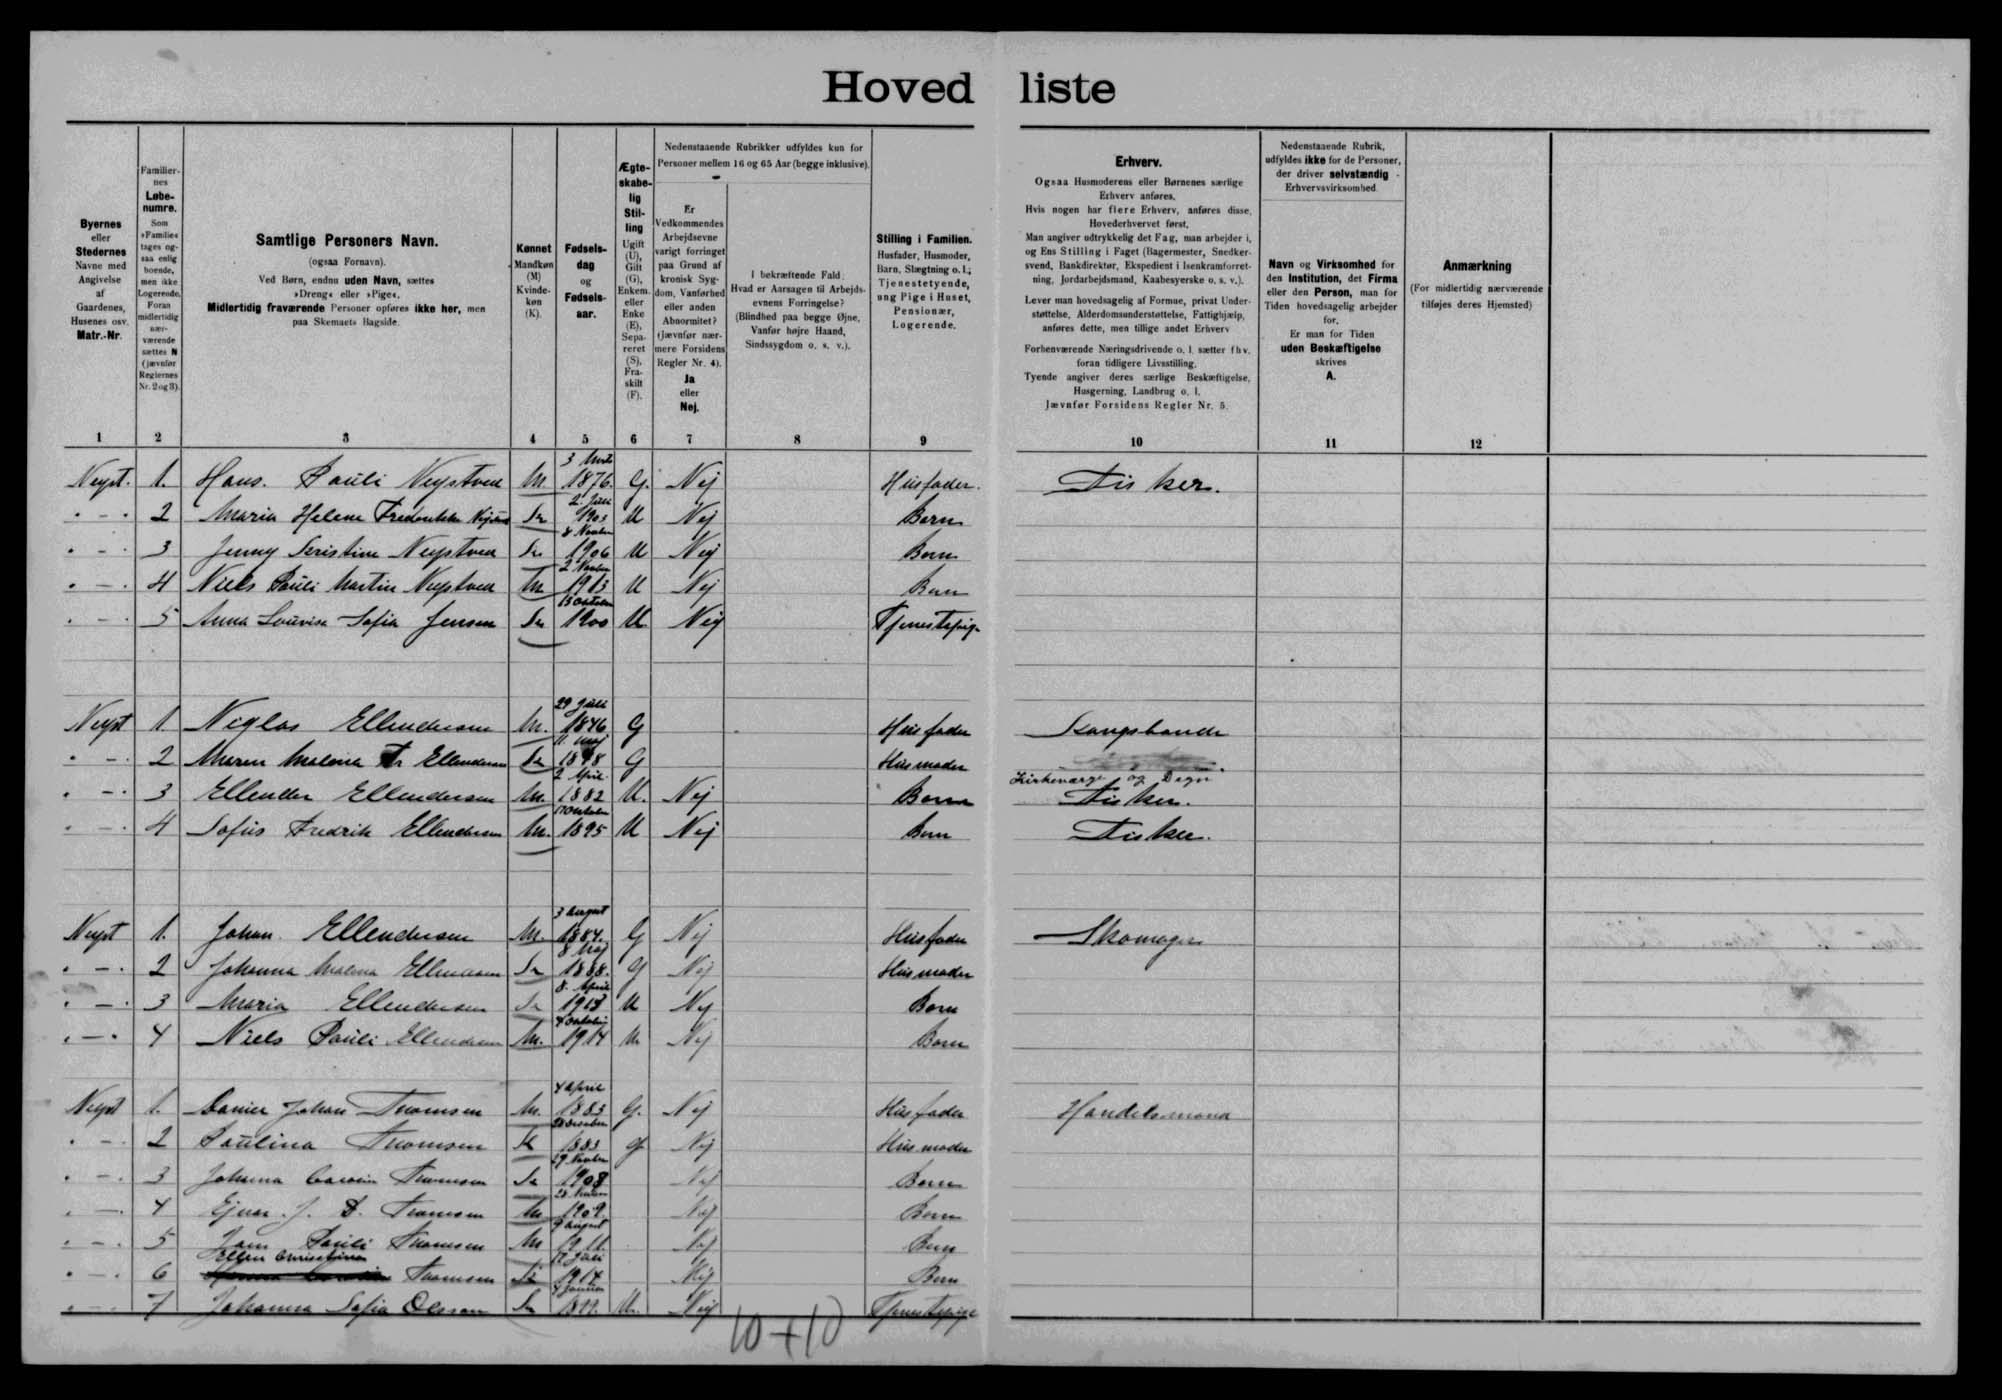 Hovedliste
Byernes
eller
Stedernes
Navne med
Angivelse
af
Gaardenes,
Husenes osv.
Matr.-Nr.
Familier-
nes
Løbe-
numre.
Som
»Familie«
tages og-
saa enlig
boende,
men ikke
Logerende.
Foran
midlertidig
nær-
værende
sættes N
(jævnfør
Reglernes
Nr. 2 og 3).
Samtlige Personers Navn.
(ogsaa Fornavn).
Ved Børn, endnu uden Navn, sættes
»Dreng« eller »Pige«.
Midlertidig fraværende Personer opføres ikke her, men
paa Skemaets Bagside.
Kønnet
Mandkøn
(M)
Kvinde-
køn
(K).
Fødsels-
dag
og
Fødsels-
aar.
Ægte-
skabe-
lig
Stil-
ling
Ugift
(U),
Gift
(G),
Enkem.
eller
Enke
(E),
Sepa-
reret
(S),
Fra-
skilt
(F).
Nedenstaaende Rubrikker udfyldes kun for
Personer mellem 16 og 65 Aar (begge inklusive).
Er
Vedkommendes
Arbejdsevne
varigt forringet
paa Grund af
kronisk Syg-
dom, Vanførhed
eller anden
Abnormitet?
(Jævnfør nær-
mere Forsidens
Regler Nr. 4).
Ja
eller
Nej.
I bekræftende Fald:
Hvad er Aarsagen til Arbejds-
evnens Forringelse?
(Blindhed paa begge Øjne,
Vanfør højre Haand,
Sindssygdom o. s. v.).
Stilling i Familien.
Husfader, Husmoder,
Barn, Slægtning o. l.;
Tjenestetyende,
ung Pige i Huset,
Pensionær,
Logerende.
Erhverv.
Ogsaa Husmoderens eller Børnenes særlige
Erhverv anføres.
Hvis nogen har flere Erhverv, anføres disse,
Hovederhvervet først.
Man angiver udtrykkelig det Fag, man arbejder i,
og Ens Stilling i Faget (Bagermester, Snedker-
svend, Bankdirektør, Ekspedient i Isenkramforret-
ning, Jordarbejdsmand, Kaabesyerske o. s. v.).
Lever man hovedsagelig af Formue, privat Under-
støttelse, Alderdomsunderstøttelse, Fattighjælp,
anføres dette, men tillige andet Erhverv
Forhenværende Næringsdrivende o. l. sætter fhv.
foran tidligere Livsstilling.
Tyende angiver deres særlige Beskæftigelse,
Husgerning, Landbrug o. l.
Jævnfør Forsidens Regler Nr. 5.
Nedenstaaende Rubrik,
udfyldes ikke for de Personer,
der driver selvstændig
Erhvervsvirksomhed.
Navn og Virksomhed for
den Institution, det Firma
eller den Person, man for
Tiden hovedsagelig arbejder
for.
Er man for Tiden
uden Beskæftigelse
skrives
A.
Anmærkning
(For midlertidig nærværende
tilføjes deres Hjemsted)
1 2 3 4 5 6 7 8 9 10 11 12
Neyst. 1. Hans. Pauli Neystved M 1876. G. Nej Husfader. Fisker.
" - " 2 Maria Helene 2. Juli 1903 U Nej Barn
" - " 3 Jenny Neystved 1906 U Nej Barn
" - " 4 Niels Pauli Martin Neystved M 1913 U Nej Barn
" - " 5 Anna Lovisa Sofia Jensen 1900 U Nej Tjenestepige
Neyst 1. Niclas Ellendersen M. 29 Juli 1846 G Husfader Kongsbonde
" - " 2 Maren Malena Ellendersen 11 Maj 1848 G Husmoder
Kirkeværge og Degn
" - " 3 Ellender Ellendersen M. 2 April 1882 U. Nej Barn Fisker.
" - " 4 Sofus Fredrik Ellendersen M. 1895 U Nej Barn Fisker.
Neyst 1. Johan Ellendersen M. 3 August 1884. G Nej Husfader Skomager
" - " 2 Johanna Malena Ellendersen 8 Maj 1888. G Nej Husmoder
" - " 3 Maria Ellendersen 8. April U Nej Barn
" - " 4 Niels Pauli Ellendersen M. 1914 U Nej Barn
Neyst 1. Daniel Johan Thomsen M. 4 April 1883 G. Nej Husfader Handelsmand
" - " 2 Paulina Thomsen 1883 G Nej Husmoder
" - " 3 Johanna Thomsen 1908 Nej Barn
" - " 4 Ejnar J. D. Thomsen M 1909. Nej Barn
" - " 5 Pauli Thomsen M 9 August 1911. Nej Barn
Ellen Christina
" - " 6 Thomsen 17 Juli 1914 Nej Barn
" - " 7 Johanna Sofia Olsson 1899. U. Nej Tjenestepige
10+10